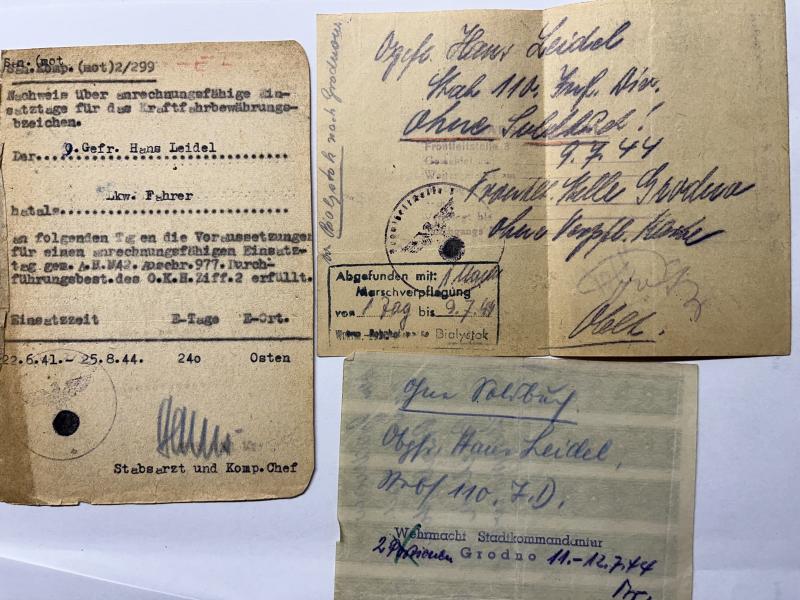 San. (mot
San.Komp.(mot)2/299
Nachweis über anrechnungsfähige Ein-
satztage für das Kraftfahrbewährungs-
bzeichen.
Der...O.Gefr. Hans Leidel
Lkw. Fahrer
hatals
an folgenden Tagen die Voraussetzungen
für einen anrechnungsfähigen Einsatz-
tag gem. A.H.M42. Abschr.977.Durch-
führungsbest.des O.K.H.Ziff.2 erfüllt.
Einsatzzeit E-Tage E-Ort.
22.6.41.- 25.8.44. 240 Osten
Stabsarzt und Komp.Chef
von Bialystok nach Grodno
Ogefr. Hans Leidel
Stab 110. Inf. Div.
Ohne Soldbuch!
Frontleitstelle 3
9.7.44
Frontleit. Stelle Grodno
ohne Verpfl. Karte
Abgefunden mit: 1 Marsch
Marschverpflegung
von 1 Tag bis 9.7.44
Bialystok
ohne Soldbuch
Obgfr. Hans Leidel,
110. I.D.
Wehrmacht Stadtkommandantur
2 Portionen Grodno 11.-12.7.44